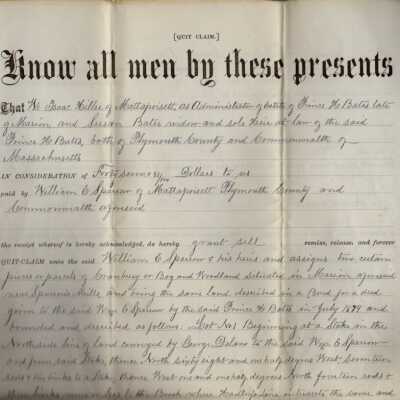 [QUIT CLAIM.]
Know all men by these presents
That We Isaac Hiller of Mattapoisett, as Administrator of estate of Prince H. Bates late
of Marion and Susan Bates widow and sole heir at law of the said
Prince H Bates, both of Plymouth County and Commonwealth of
Massachusetts
IN CONSIDERATION of Dollars to us
paid by William E Sparrow of Mattapoisett Plymouth County and
Commonwealth aforesaid
the receipt whereof is hereby acknowledged, do hereby grant sell remise, release, and forever
QUIT-CLAIM unto the said William E Sparrow & his heirs and assigns two certain
pieces or parcels of Cranberry or Bog and Woodland situated in Marion aforesaid
near Mills and being the same land described in a Bond for a deed
given to the said Wm E Sparrow by the said Prince H Bates in July 1879 and
bounded and described as follows. Lot No 1 Beginning at a Stake on the
Northside line of land conveyed by George Delano to the said Wm E Sparrow
and from said Stake, thence North sixty eight and degrees West seventeen
rods & ten links to a Stake thence West one and degrees North fourteen rods &
links more or less to the Brook where the same and